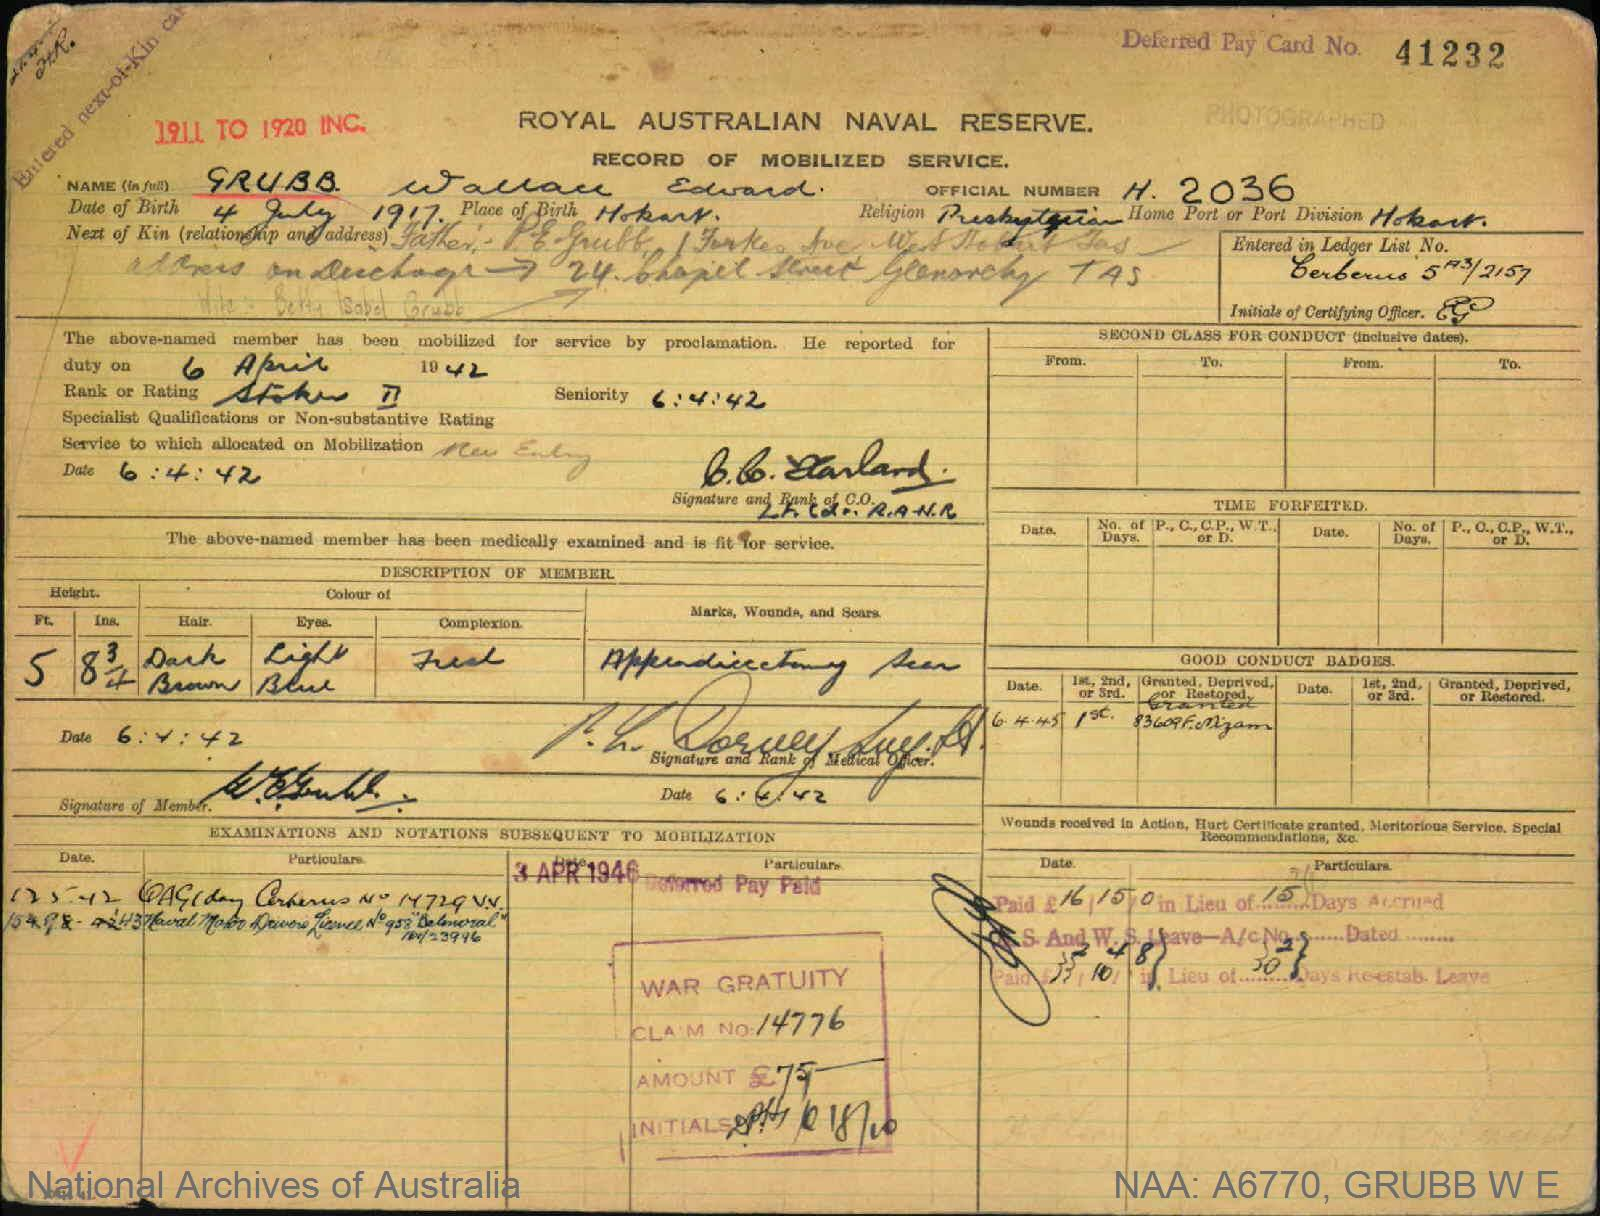 Deferred Pay Card No. 41232
Entered next-of-Kin car
1911 TO 1920 INC.
PHOTOGRAPHED
ROYAL AUSTRALIAN NAVAL RESERVE.
RECORD OF MOBILIZED SERVICE.
NAME (in full) GRUBB. Wallace Edward. OFFICIAL NUMBER H. 2036
Date of Birth 4 July 1917. Place of Birth Hobart. Religion Presbyterian Home Port or Port Division Hobart.
Next of Kin (relationship and address) Father:- P.E. Grubb, 1 Forkes Ave West Hobart Tas
address on Discharge → 24. Chapel Street Glenorchy TAS
Wife:- Betty Isabel Grubb
Entered in Ledger List No.
Cerberus 5 A3/2157
Initials of Certifying Officer. EG
The above-named member has been mobilized for service by proclamation. He reported for
duty on 6 April 1942
Rank or Rating Stoker II Seniority 6:4:42
Specialist Qualifications or Non-substantive Rating
Service to which allocated on Mobilization New Entry
Date 6:4:42
Signature and Rank of C.O.
Lt. Cdr. R.A.N.R
The above-named member has been medically examined and is fit for service.
DESCRIPTION OF MEMBER.
Height. Colour of Marks, Wounds, and Scars.
Ft. Ins. Hair. Eyes. Complexion.
5 8 3/4 Dark Brown Light Blue Fresh Appendicectomy Scar
Date 6:4:42
Signature and Rank of Medical Officer.
W.E. Grubb.
Signature of Member. Date 6:4:42
EXAMINATIONS AND NOTATIONS SUBSEQUENT TO MOBILIZATION
Date. Particulars. Date. Particulars.
3 APR 1946 Deferred Pay Paid
12.5.42 Cerberus No 14729
Naval Motor Drivers Licence No 958 "Balmoral"
23996
WAR GRATUITY
CLAIM NO. 14776
AMOUNT £75
INITIALS 18/10
SECOND CLASS FOR CONDUCT (inclusive dates).
From. To. From. To.
TIME FORFEITED.
Date. No. of Days. P., C., C.P., W.T., or D. Date. No. of Days. P., C., C.P., W.T., or D.
GOOD CONDUCT BADGES.
Date. 1st, 2nd, or 3rd. Granted, Deprived, or Restored. Date. 1st, 2nd, or 3rd. Granted, Deprived, or Restored.
6.4.45 1st. Granted
83609 F. Nizam
Wounds received in Action, Hurt Certificate granted, Meritorious Service, Special
Recommendations, &c.
Date. Particulars.
Paid £16/15/0 in Lieu of 15 Days Accrued
S. And W. S. Leave—A/c No. ........ Dated ........
Paid £ in Lieu of 30 Days Re-estab. Leave
National Archives of Australia
NAA: A6770, GRUBB W E